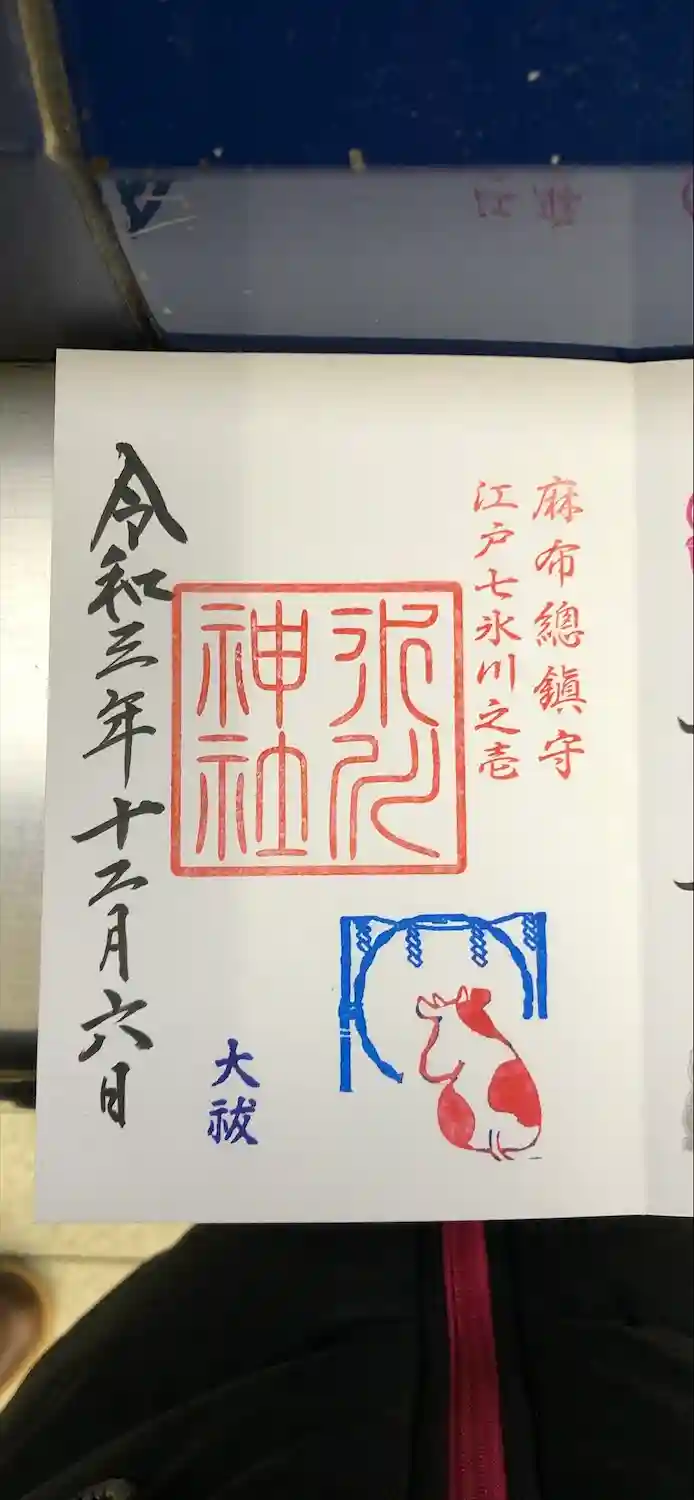 麻布總鎮守
江戸七氷川之壱
氷川
神社
大祓
令和三年十二月六日